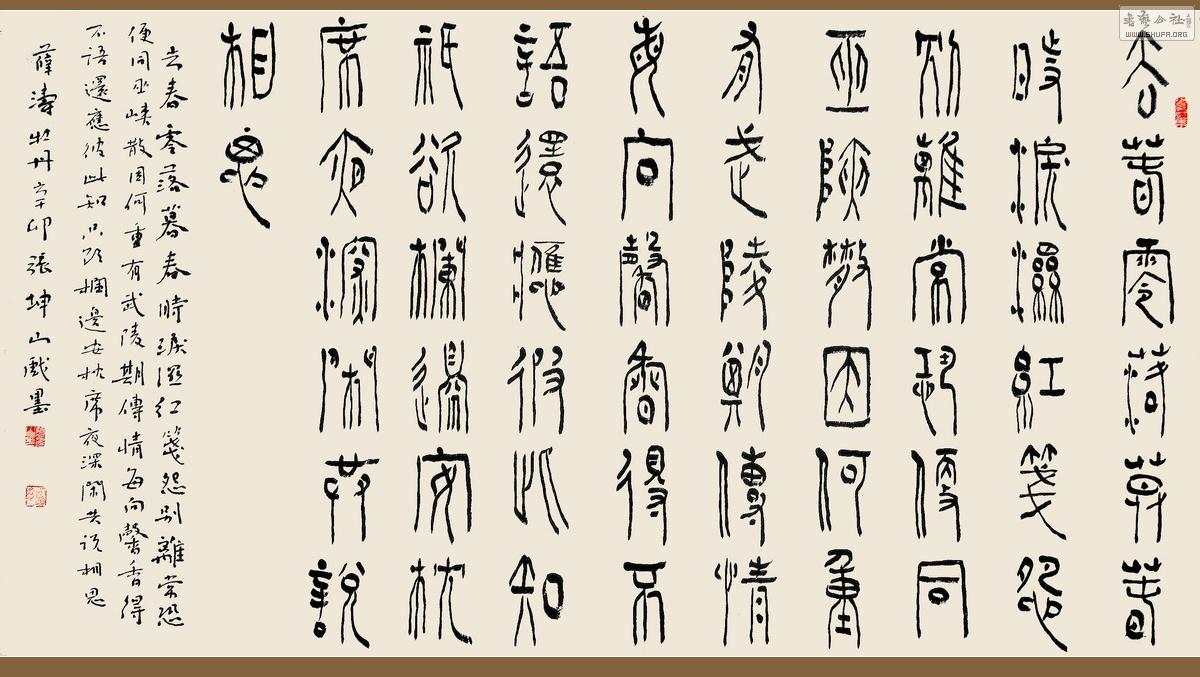 去春零落暮春
時淚濕紅箋怨
別離常恐便同
巫峽散因何重
有武陵期傳情
每向馨香得不
語還應彼此知
祇欲欄邊安枕
席夜深閒共說
相思
去春零落暮春時淚濕紅箋怨別離常恐
便同巫峽散因何重有武陵期傳情每向馨香得
不語還應彼此知只欲欄邊安枕席夜深閑共說相思
薛濤牡丹辛卯張坤山戲墨
WWW.SHUFA.ORG